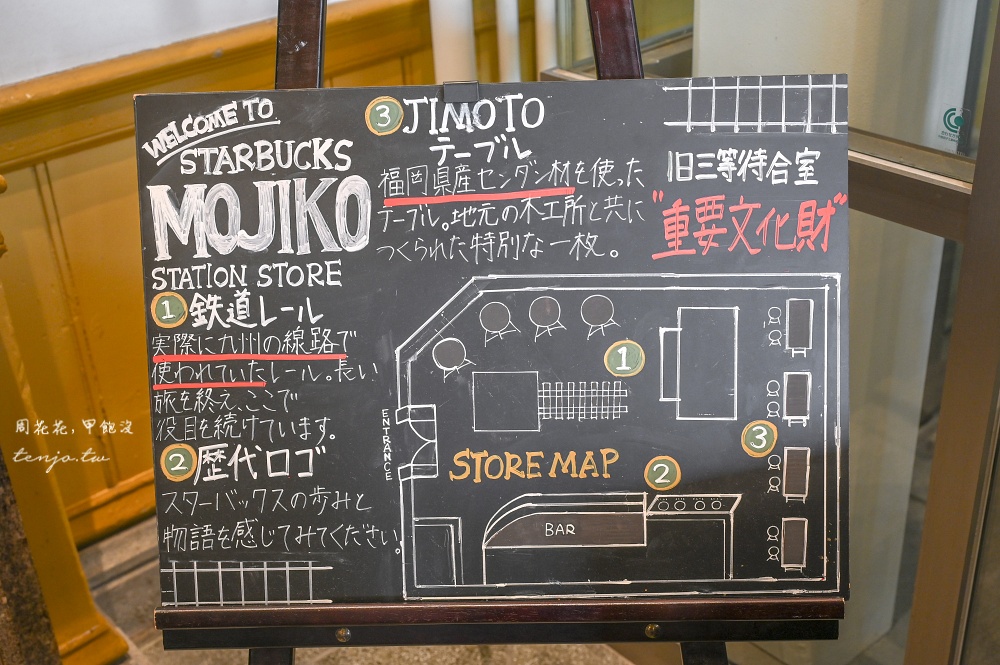 WELCOME TO
STARBUCKS
MOJIKO
STATION STORE
① 鉄道レール
実際に九州の線路で
使われていたレール。長い
旅を終え、ここで
役目を続けています。
② 歴代ロゴ
スターバックスの歩みと
物語を感じてみてください。
③ JIMOTO
テーブル
福岡県産センダン材を使った
テーブル。地元の木工所と共に
つくられた特別な一枚。
旧三等待合室
"重要文化財"
①
ENTRANCE
STORE MAP
②
③
BAR
周花花,甲飽沒
tenjo.tw